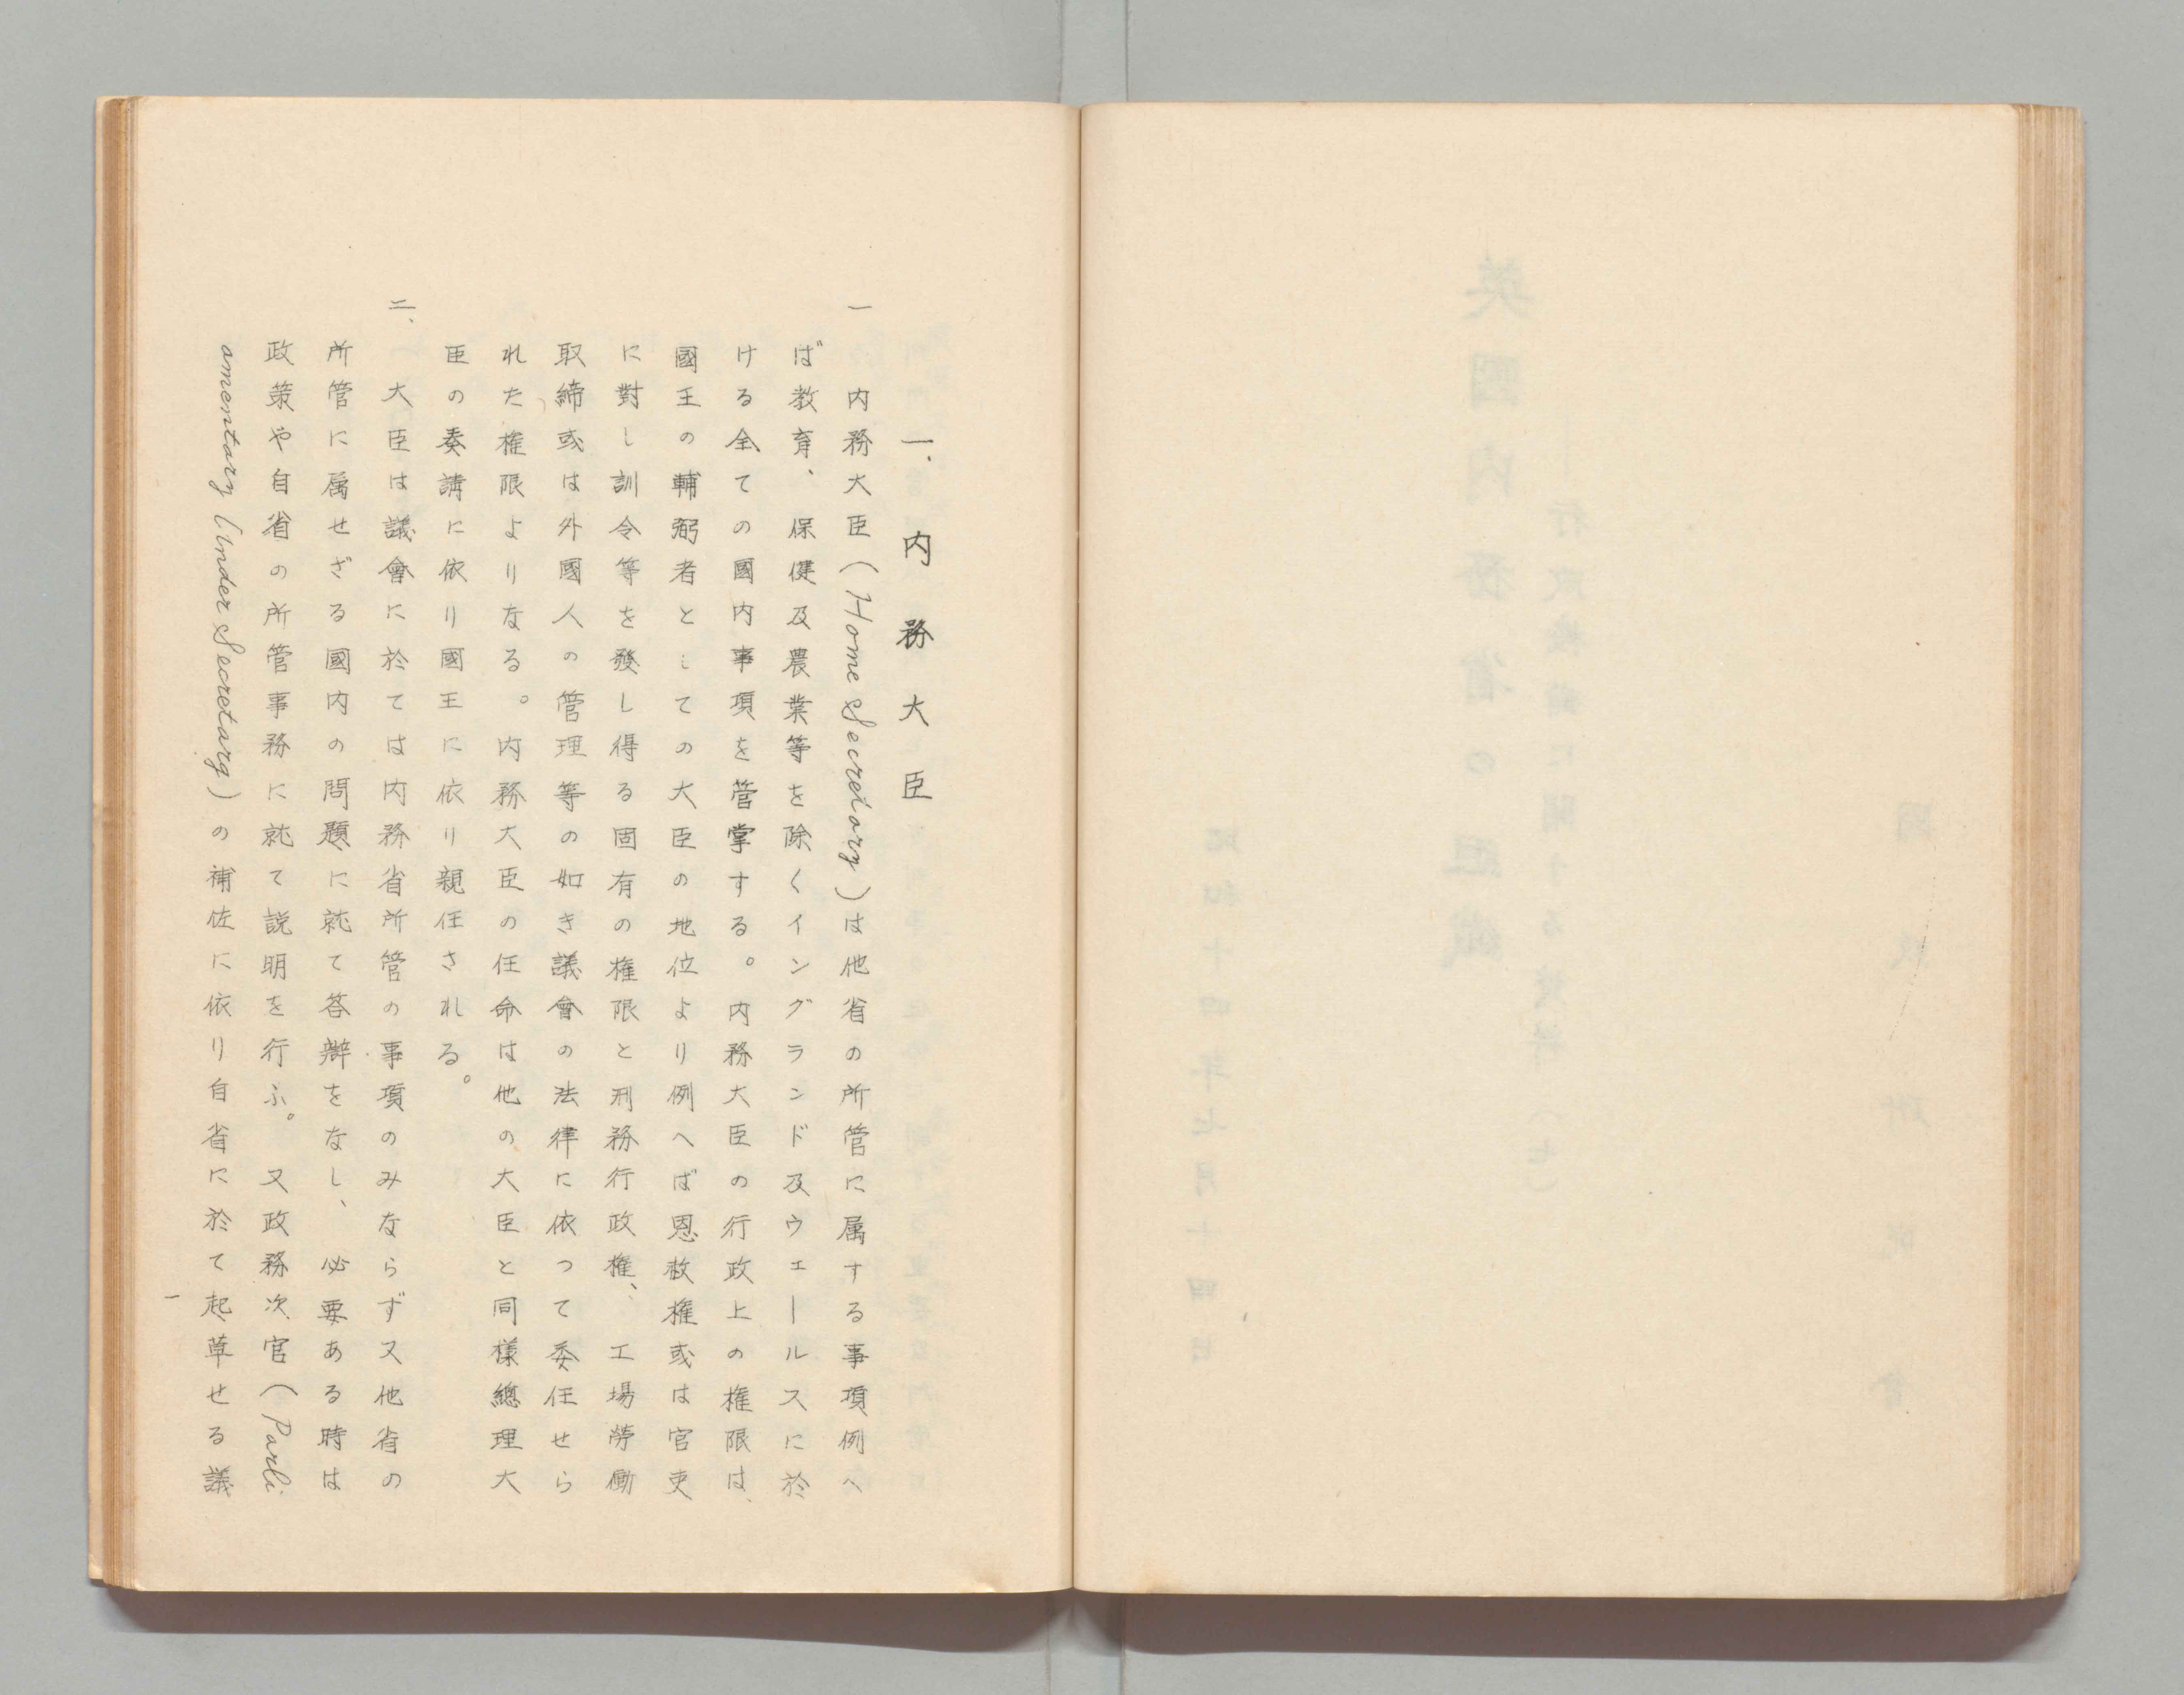 一、内務大臣
一　内務大臣（Home Secretary）は他省の所管に属する事項例へ
ば教育、保健及農業等を除くイングランド及ウェールスに於
ける全ての國内事項を菅掌する。内務大臣の行政上の権限は、
國王の輔弼者としての大臣の地位より例へば恩赦権或は官吏
に對し訓令等を發し得る固有の権限と刑務行政権、工場勞働
取締或は外國人の管理等の如き議會の法律に依つて委任せら
れた権限よりなる。内務大臣の任命は他の大臣と同様總理大
臣の奏請に依り國王に依り親任される。
二、大臣は議會に於ては内務省所管の事項のみならず又他省の
所管に属せざる國内の問題に就て答辯をなし、必要ある時は
政策や自省の所管事務に就て説明を行ふ。又政務次官（Parli-
amentary Under Secretary）の補佐に依り自省に於て起草せる議
一